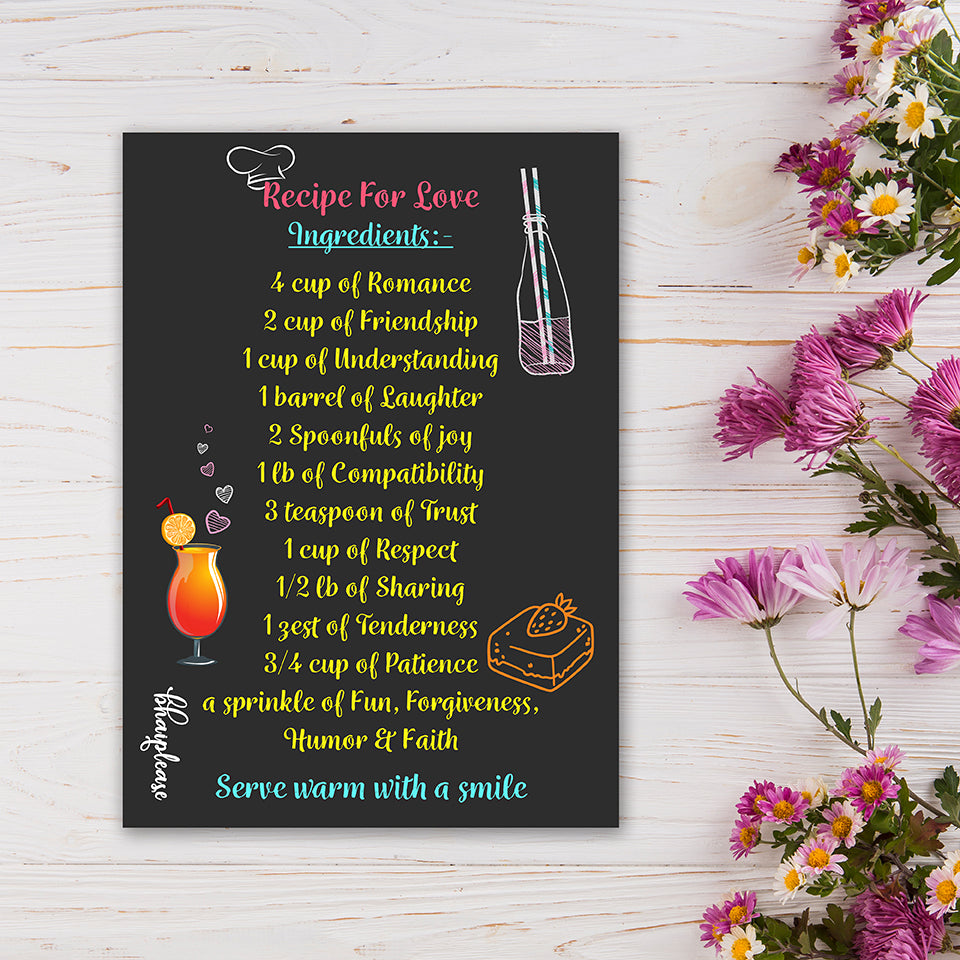 Recipe For Love
Ingredients:-
4 cup of Romance
2 cup of Friendship
1 cup of Understanding
1 barrel of Laughter
2 Spoonfuls of joy
1 lb of Compatibility
3 teaspoon of Trust
1 cup of Respect
1/2 lb of Sharing
1 zest of Tenderness
3/4 cup of Patience
a sprinkle of Fun, Forgiveness,
Humor & Faith
Serve warm with a smile
bhaiplease